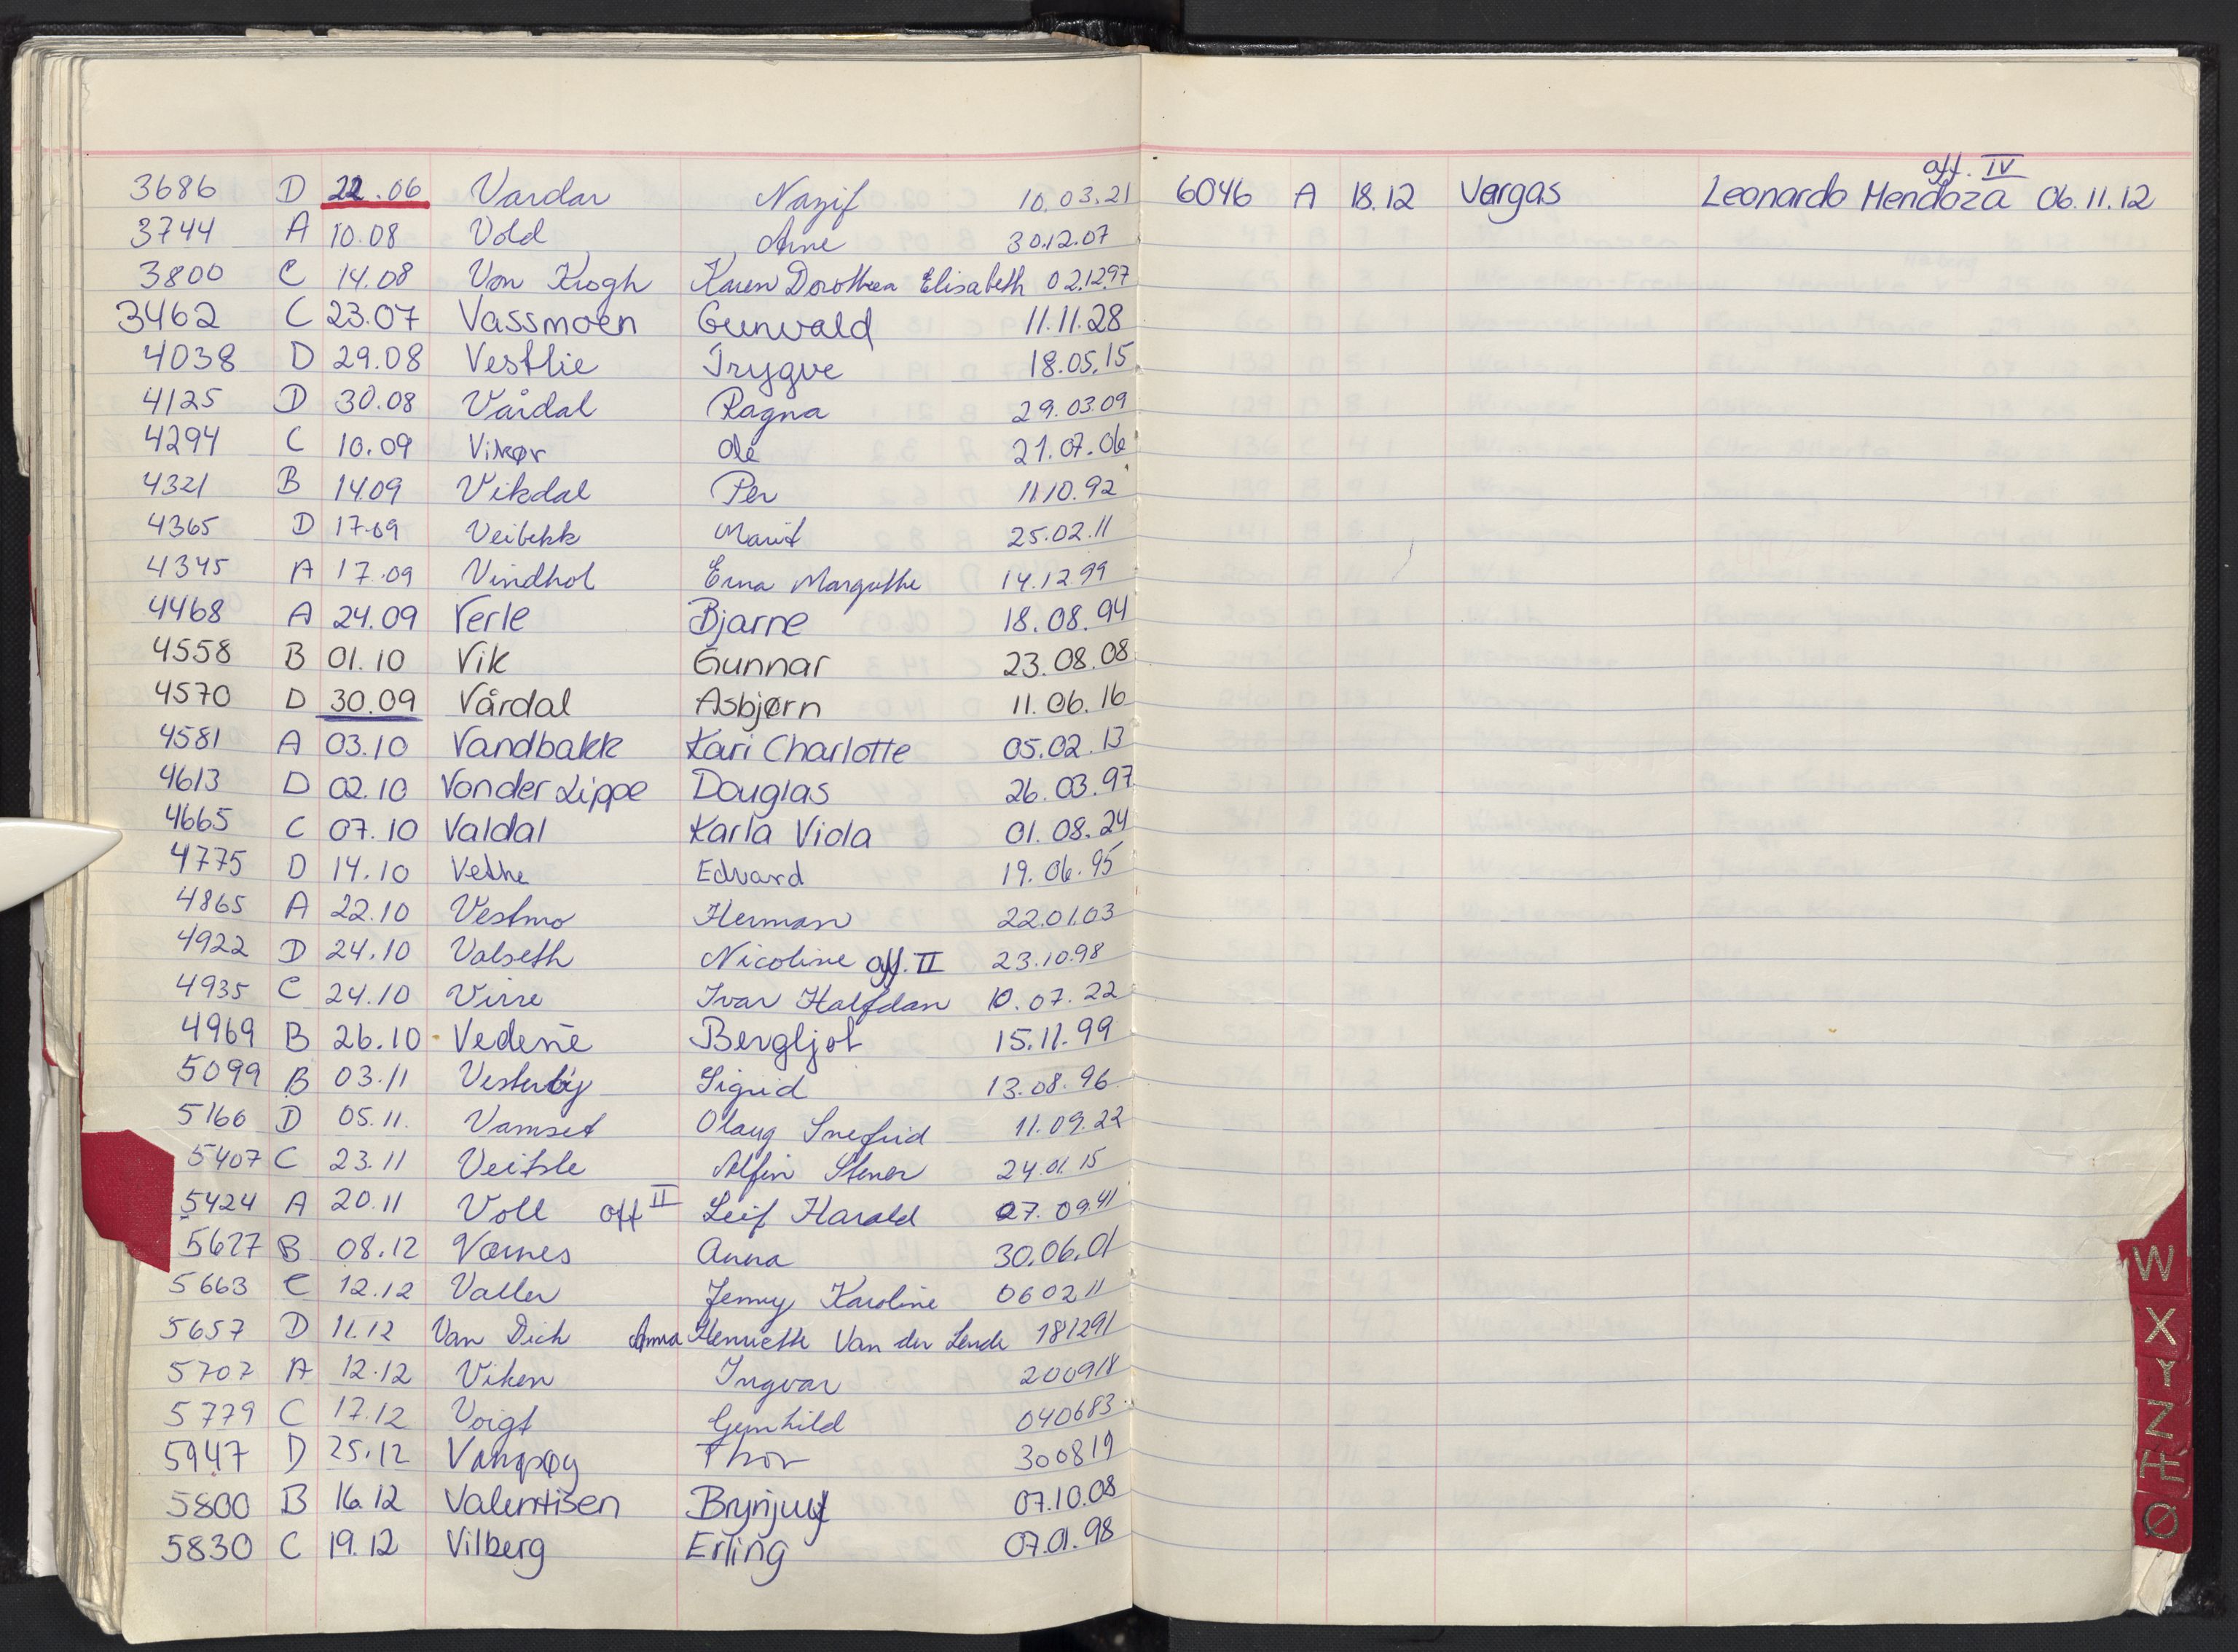 3686 D 22.06 Vardar Nazif 10.03.21
3744 A 10.08 Vold Arne 30.12.07
3800 C 14.08 Von Krogh Karen Dorothea Elisabeth 02.12.97
3462 C 23.07 Vassmoen Gunvald 11.11.28
4038 D 29.08 Vestlie Trygve 18.05.15
4125 D 30.08 Vårdal Ragna 29.03.09
4294 C 10.09 Vikør Ole 21.07.06
4321 B 14.09 Vikdal Per 11.10.92
4365 D 17.09 Veibekk Marit 25.02.11
4345 A 17.09 Vindhol Erna Margrethe 14.12.99
4468 A 24.09 Verle Bjarne 18.08.94
4558 B 01.10 Vik Gunnar 23.08.08
4570 D 30.09 Vårdal Asbjørn 11.06.16
4581 A 03.10 Vandbakk Kari Charlotte 05.02.13
4613 D 02.10 Von der Lippe Douglas 26.03.97
4665 C 07.10 Valdal Karla Viola 01.08.24
4775 D 14.10 Vethe Edvard 19.06.95
4865 A 22.10 Vestmo Herman 22.01.03
4922 D 24.10 Valseth Nicoline off. II 23.10.98
4935 C 24.10 Virre Ivar Halfdan 10.07.22
4969 B 26.10 Vedene Bergljot 15.11.99
5099 B 03.11 Vesterby Sigrid 13.08.96
5166 D 05.11. Vamset Olaug Snefrid 11.09.22
5407 C 23.11 Veitsle Alfin Stener 24.01.15
5424 A 20.11 Voll off II Leif Harald 27.09.41
5627 B 08.12 Værnes Anna 30.06.01
5663 C 12.12 Valler Jenny Karoline 060211
5657 D 11.12 Van Dick Anna Henriette Van der Lende 181291
5707 A 12.12 Viken Ingvar 200918
5779 C 17.12 Voigt Gunhild 040683
5947 D 25.12 Vangsøy Thor 300819
5800 B 16.12 Valentisen Brynjulf 07.10.08
5830 C 19.12 Vilberg Erling 07.01.98
off. IV
6046 A 18.12 Vargas Leonardo Mendoza 06.11.12
W
X
Y
Z
Æ
Ø